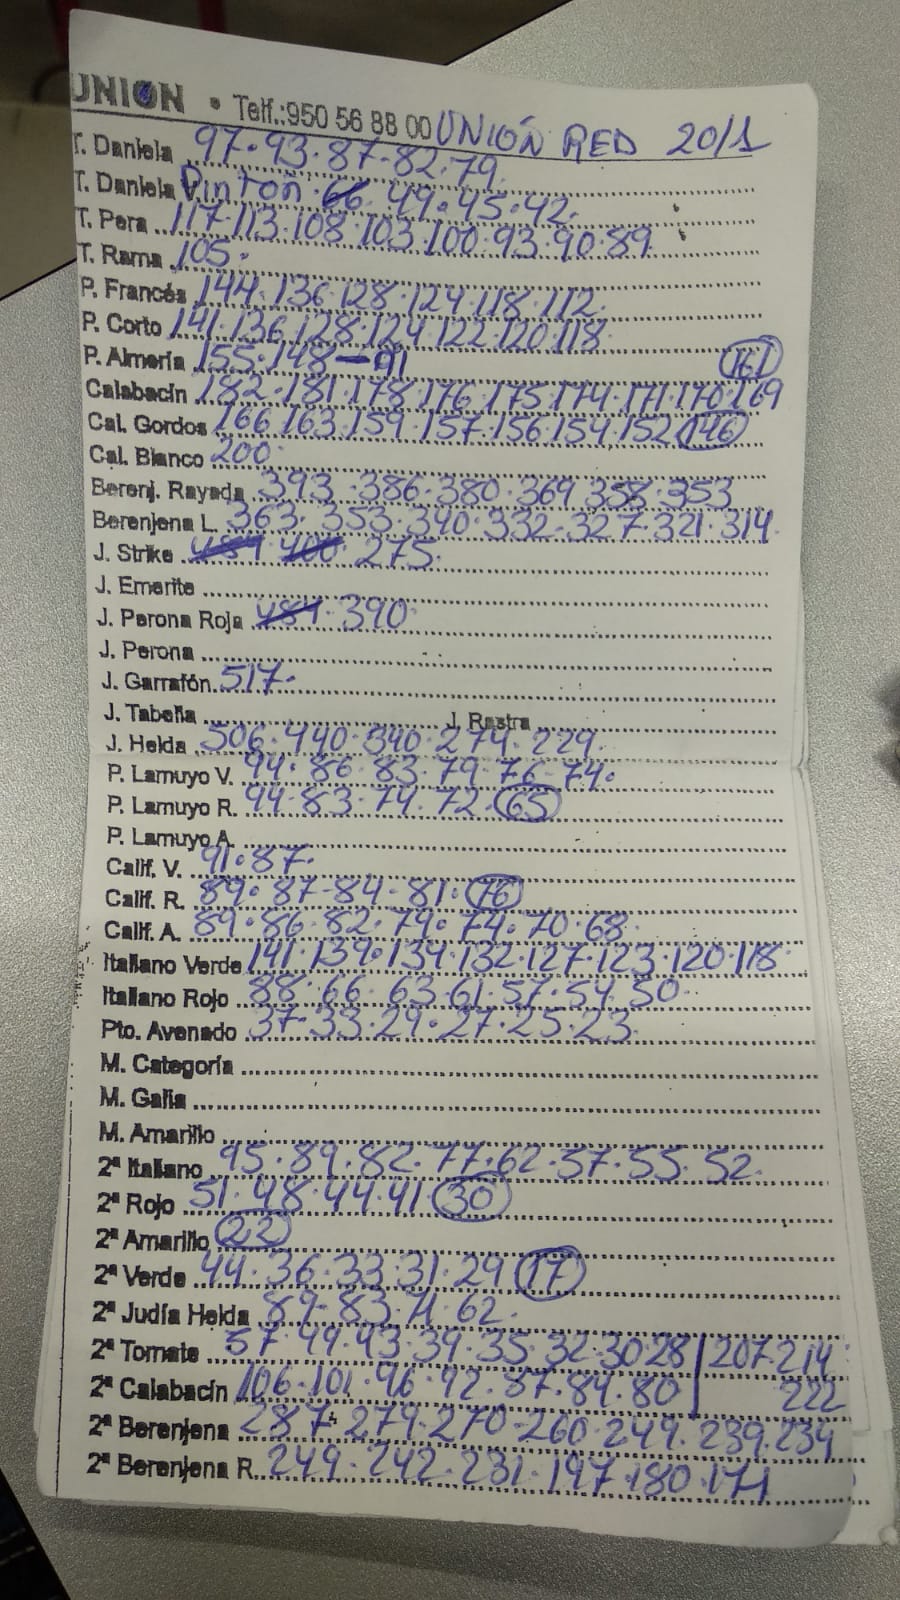 UNIÓN • Telf.: 950 56 88 00 UNIÓN RED 20/1
T. Daniela 97·93·87·82·79
T. Daniela Pintón · 49·45·42·
T. Pera 117·113·108·103·100·93·90·89
T. Rama 105·
P. Francés 144·136·128·124·118·112
P. Corto 141·136·128·124·122·120·118
P. Almería 155·148—91 161
Calabacín 182·181·178·176·175·174·171·170·169
Cal. Gordos 166·163·159·157·156·154·152 146
Cal. Blanco 200·
Berenj. Rayada 393·386·380·369·358·353
Berenjena L. 363·353·340·332·327·321·314
J. Strike 484 400· 275·
J. Emerite
J. Perona Roja 484· 390
J. Perona
J. Garrafón 517·
J. Tabella J. Rastra
J. Helda 506·440·340·274·229·
P. Lamuyo V. 94·86·83·79·76·74·
P. Lamuyo R. 94·83·74·72·65
P. Lamuyo A.
Calif. V. 91·87·
Calif. R. 89·87-84-81·76
Calif. A. 89·86·82·79·74·70·68
Italiano Verde 141·139·134·132·127·123·120·118
Italiano Rojo 88·66·63·61·57·54·50
Pto. Avenado 37·33·29·27·25·23
M. Categoría
M. Galia
M. Amarillo
2ª Italiano 95·89·82·77·62·57·55·52·
2ª Rojo 51·48·44·41 30
2ª Amarillo 22
2ª Verde 44·36·33·31·29 17
2ª Judía Helda 89-83·71·62·
2ª Tomate 57·49·43·39·35·32·30·28 | 207·214
2ª Calabacín 106·101·96·92·87·84·80 | 222
2ª Berenjena 287·279·270-260·249·239·234
2ª Berenjena R. 249·242·231·197·180·171